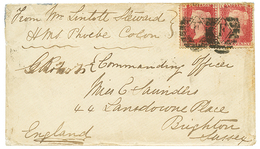 From Wm Lintott Steward
HMS Phoebe Colon
Commanding Officer
Miss C Saunders
44 Lansdowne Place
Brighton
Sussex
England